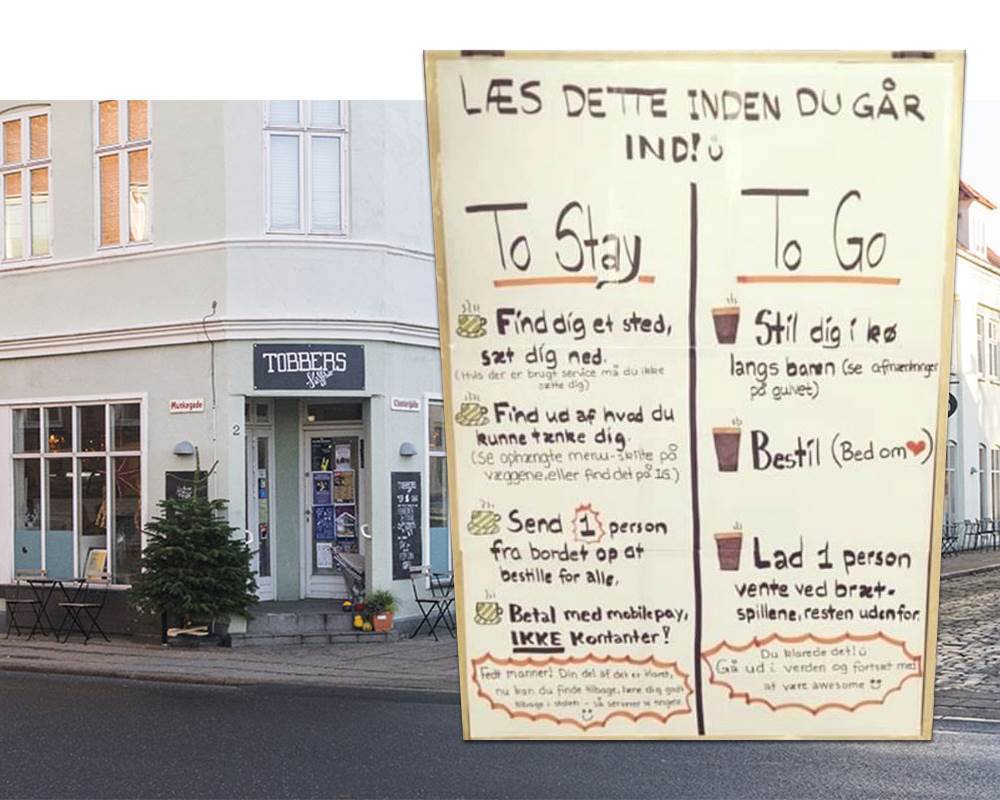 TOBBERS
Kaffebar
Munkegade
2
LÆS DETTE INDEN DU GÅR
IND!
To Stay
Find dig et sted,
sæt dig ned.
(Hvis der er brugt service må du ikke
sætte dig)
Find ud af hvad du
kunne tænke dig.
(Se ophængte menu-skilte på
væggene, eller find det på IG.)
Send 1 person
fra bordet op at
bestille for alle,
Betal med mobilepay,
IKKE Kontanter!
Fedt manner! Din del af det er klaret,
nu kan du finde tilbage, læne dig godt
tilbage i stolen - så serverer vi
To Go
Stil dig i kø
langs baren (se afmærkninger
på gulvet)
Bestil (Bed om ❤)
Lad 1 person
vente ved bræt-
spillene, resten udenfor.
Du klarede det!
Gå ud i verden og fortsæt med
at være awesome